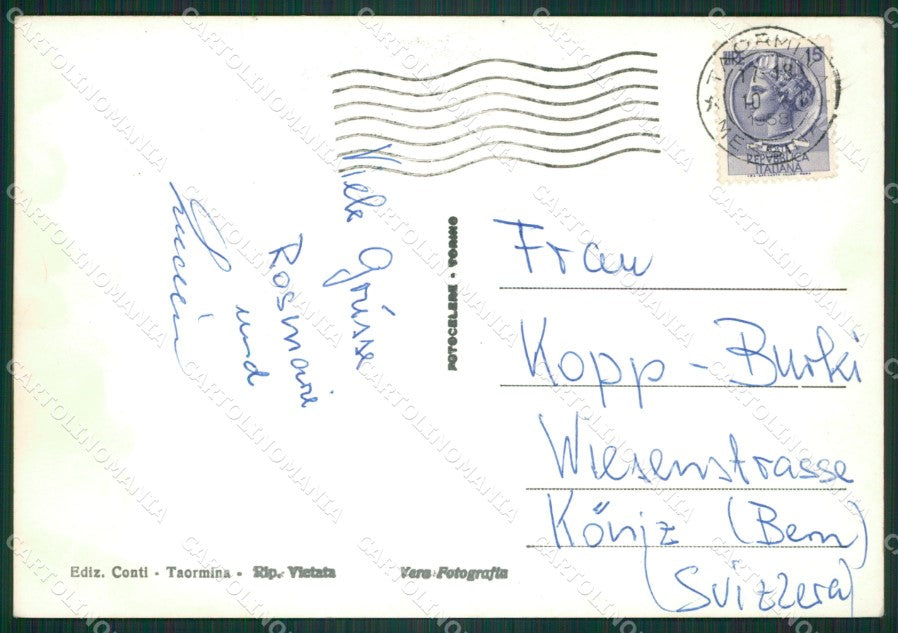 Viele Grüsse
Rosmarie
und
FOTOCELERE - TORINO
TAORMINA
17-18
10
LIRE 15
REPVBBLICA
ITALIANA
Frau
Kopp - Burki
Wiesenstrasse
Köniz (Bern)
(Svizzera)
Ediz. Conti - Taormina - Rip. Vietata
Vera Fotografia
CARTOLINOMANIA